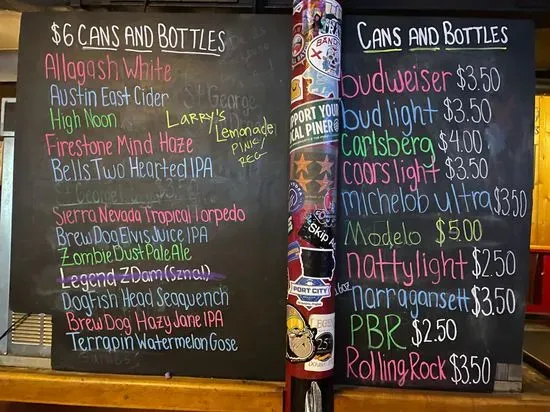 $6 CANS AND BOTTLES
Allagash White
Austin East Cider
High Noon
Firestone Mind Haze
Bells Two Hearted IPA
Sierra Nevada Tropical Torpedo
BrewDog Elvis Juice IPA
Zombie Dust Pale Ale
Legend ZDam (Sznal)
Dogfish Head Seaquench
Brew Dog Hazy Jane IPA
Terrapin Watermelon Gose
Larry's
Lemonade
PINK/
REG
PORT YOUR
CAL PINER
Skip
PORT CITY
CANS AND BOTTLES
budweiser $3.50
bud light $3.50
Carlsberg $4.00
coors light $3.50
michelob ultra $3.50
Modelo $5.00
natty light $2.50
16oz narragansett $3.50
PBR $2.50
Rolling Rock $3.50